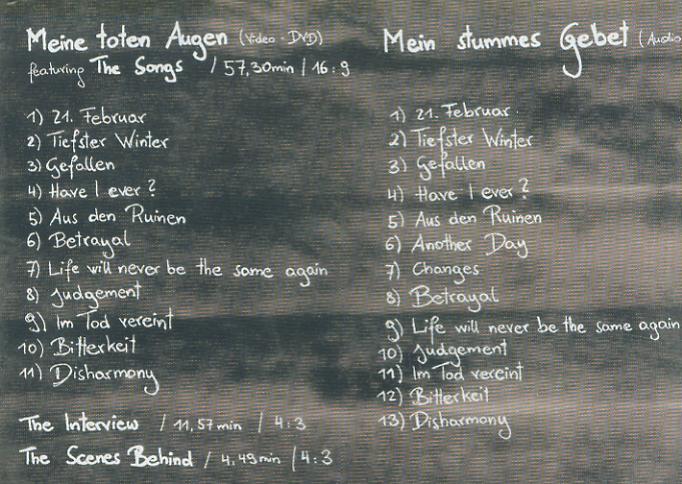 Meine toten Augen (Video - DVD)
featuring The Songs / 57,30min / 16:9
1) 21. Februar
2) Tiefster Winter
3) Gefallen
4) Have I ever?
5) Aus den Ruinen
6) Betrayal
7) Life will never be the same again
8) Judgement
9) Im Tod vereint
10) Bitterkeit
11) Disharmony
The Interview / 11,57min / 4:3
The Scenes Behind / 4,49min / 4:3
Mein stummes Gebet (Audio
1) 21. Februar
2) Tiefster Winter
3) Gefallen
4) Have I ever?
5) Aus den Ruinen
6) Another Day
7) Changes
8) Betrayal
9) Life will never be the same again
10) Judgement
11) Im Tod vereint
12) Bitterkeit
13) Disharmony